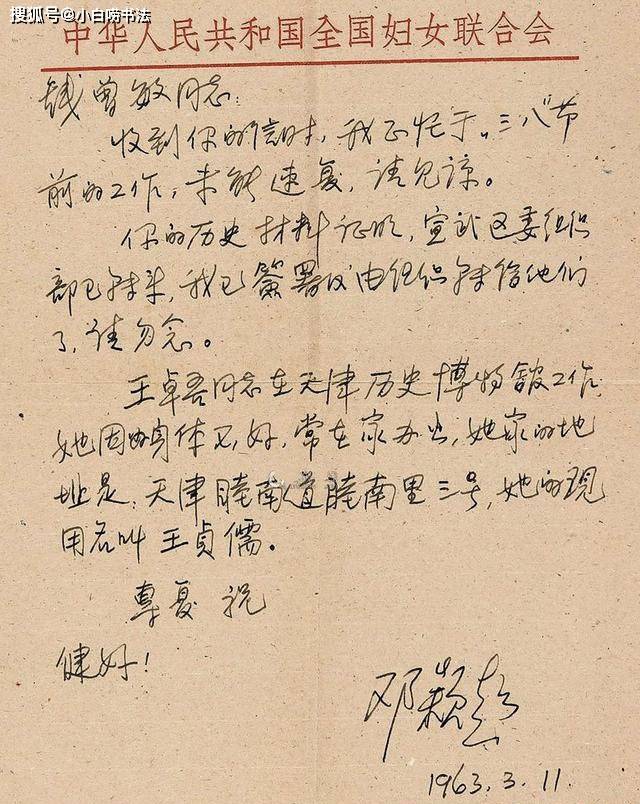 搜狐号@小白唠书法
中华人民共和国全国妇女联合会
钱曾敏同志：
收到你的信时，我正忙于“三八”节
前的工作，未能速复，请见谅。
你的历史材料证明，宣武区委组织
部已转来，我已签署后由组织转给他们
了，请勿念。
王卓吾同志在天津历史博物馆工作，
她因为身体不好，常在家办公，她家的地
址是：天津睦南道睦南里三号，她的现
用名叫王贞儒。
专复 祝
健好！
邓颖超
1963.3.11.